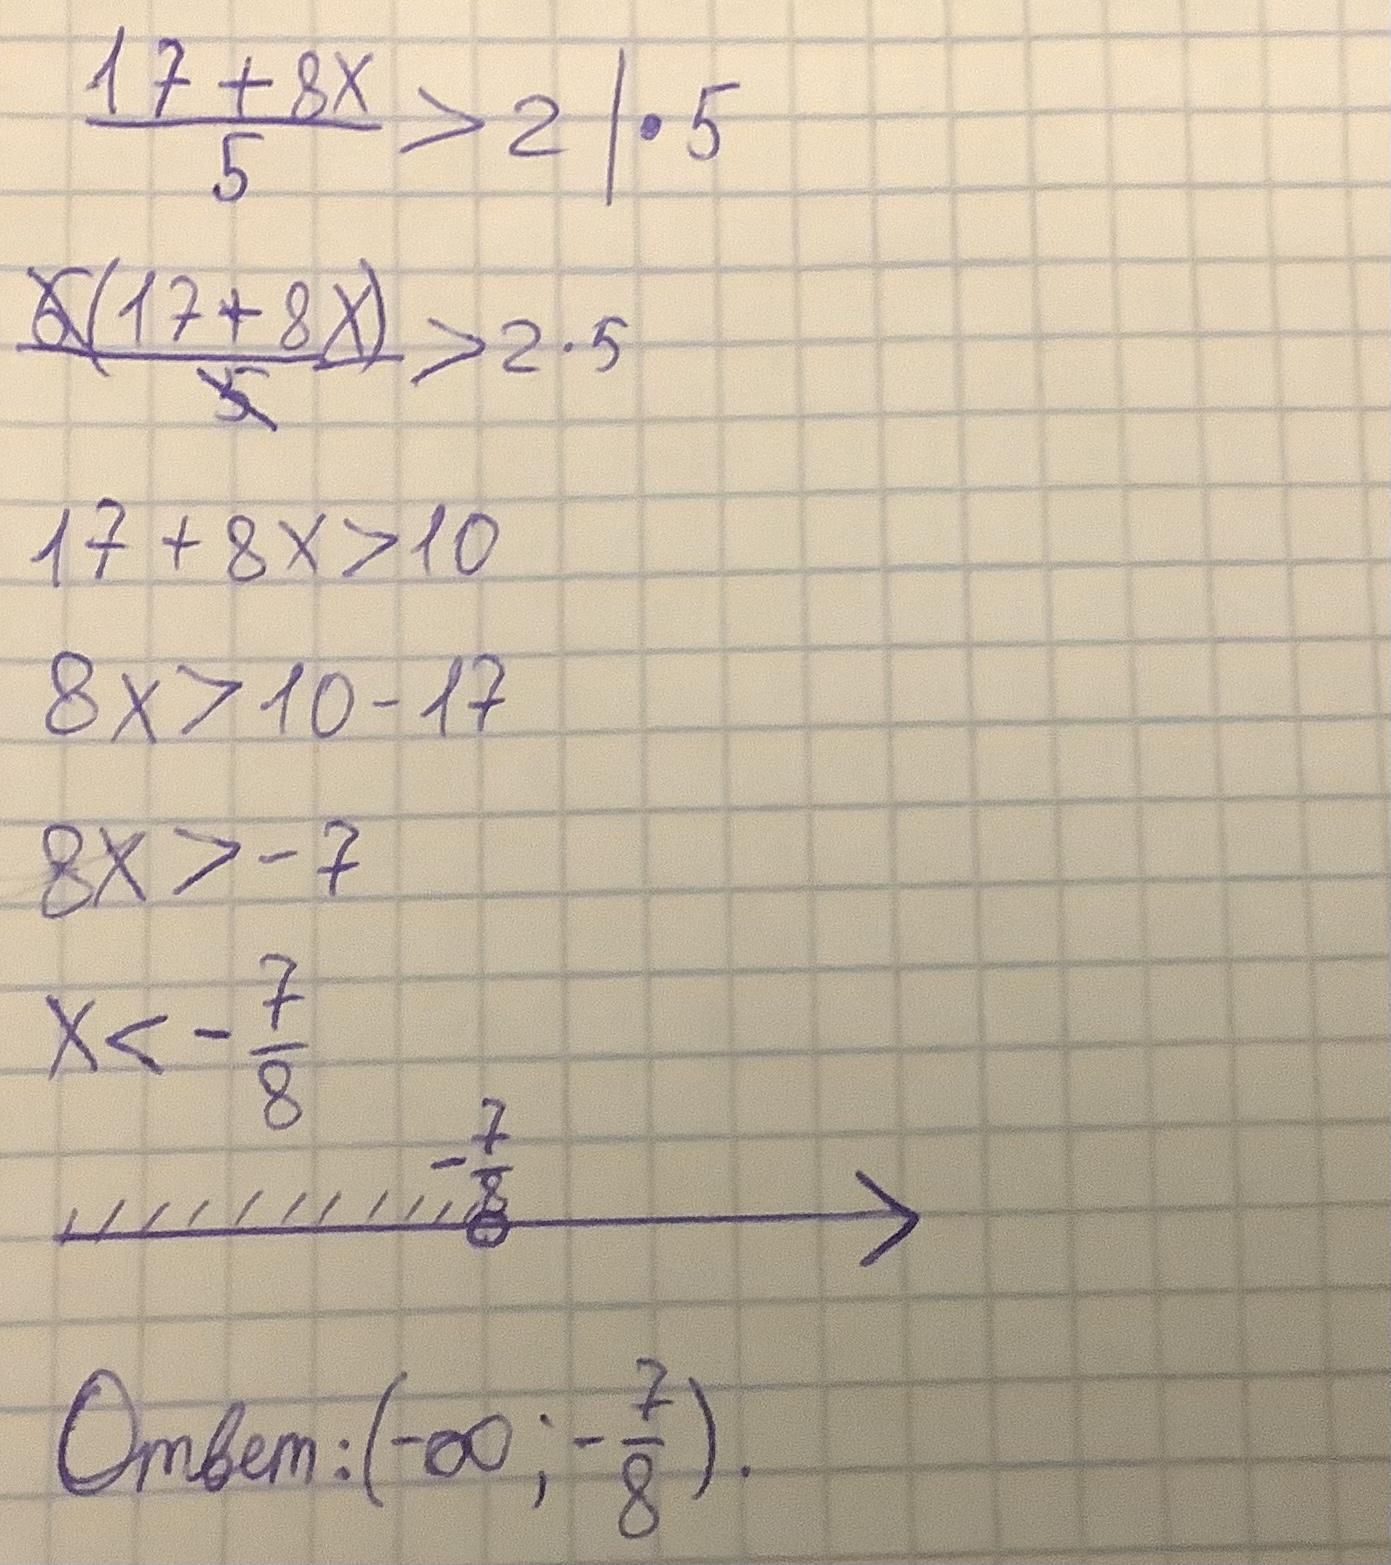 (17 + 8x)/5 > 2 | · 5
5(17 + 8x)/5 > 2 · 5
17 + 8x > 10
8x > 10 - 17
8x > - 7
x < - 7/8
- 7/8
Ответ: (-∞; - 7/8).